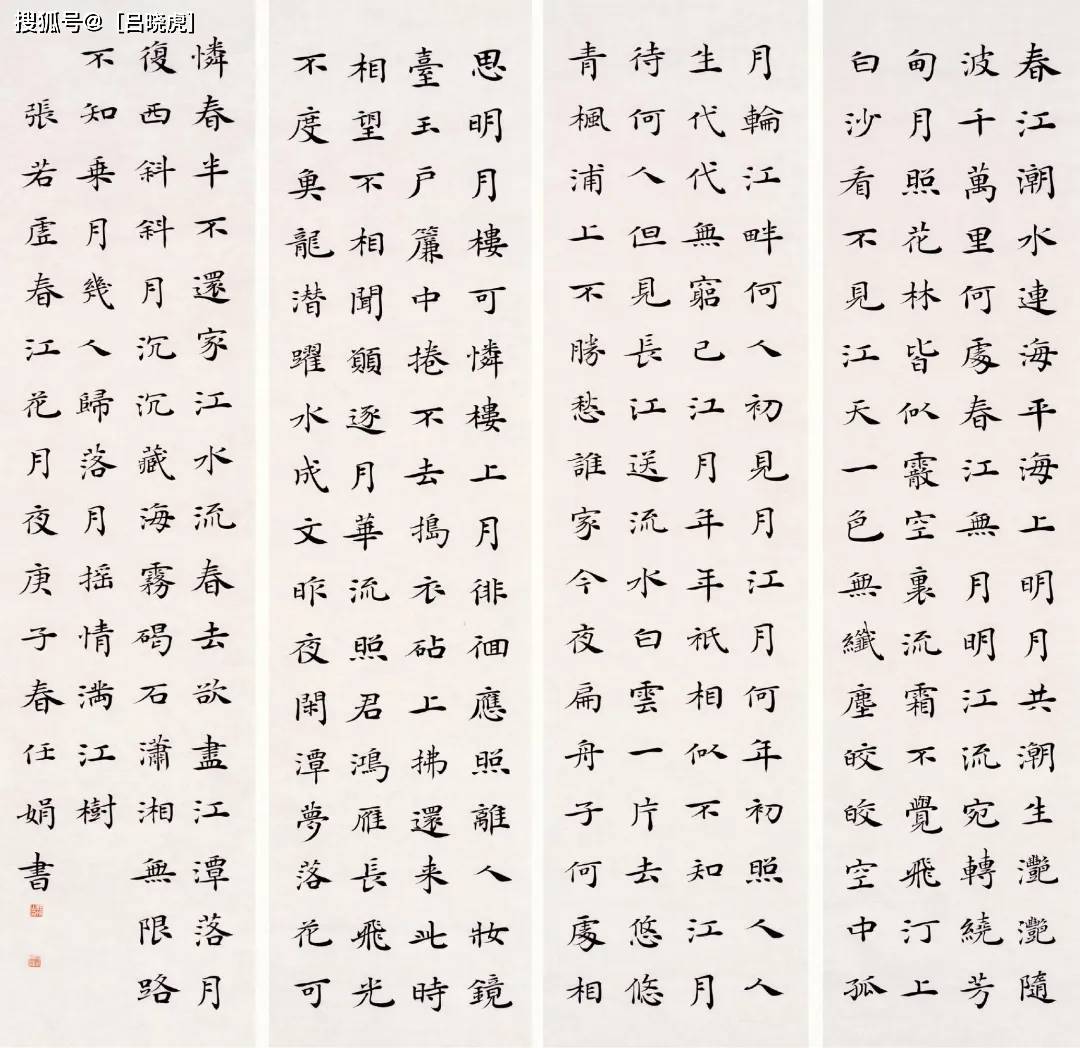 搜狐号@[吕晓虎]
春江潮水連海平海上明月共潮生灧灧隨
波千萬里何處春江無月明江流宛轉繞芳
甸月照花林皆似霰空裏流霜不覺飛汀上
白沙看不見江天一色無纖塵皎皎空中孤
月輪江畔何人初見月江月何年初照人人
生代代無窮已江月年年祇相似不知江月
待何人但見長江送流水白雲一片去悠悠
青楓浦上不勝愁誰家今夜扁舟子何處相
思明月樓可憐樓上月徘徊應照離人妝鏡
臺玉戶簾中捲不去搗衣砧上拂還来此時
相望不相聞願逐月華流照君鴻雁長飛光
不度魚龍潛躍水成文昨夜閑潭夢落花可
憐春半不還家江水流春去欲盡江潭落月
復西斜斜月沉沉藏海霧碣石瀟湘無限路
不知乘月幾人歸落月摇情滿江樹
張若虛春江花月夜庚子春任娟書